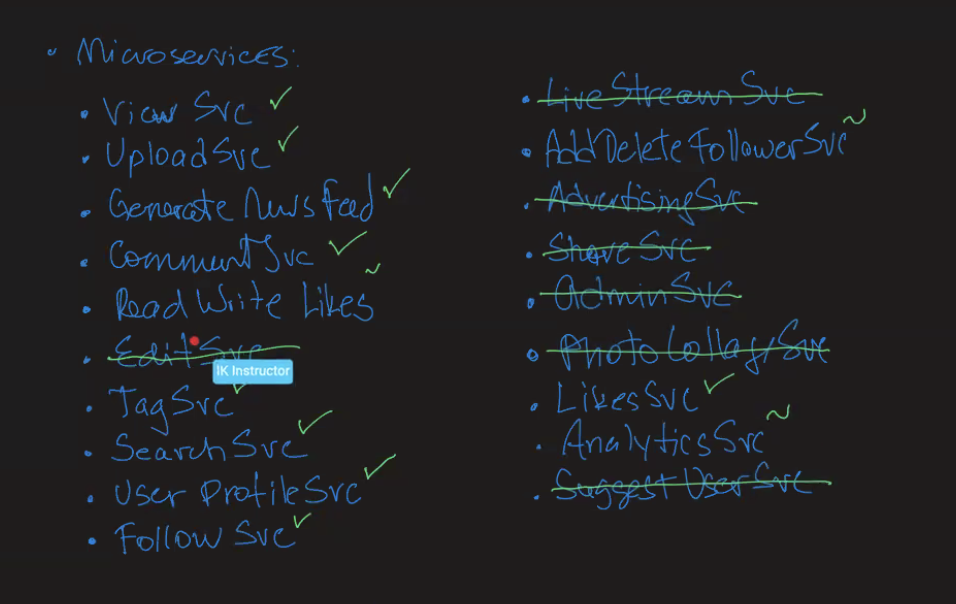 • Microservices:
• View Svc ✓
• UploadSvc ✓
• Generate Newsfeed ✓
• CommentSvc ✓
• Read Write Likes ~
• EditSvc
IK Instructor
• TagSvc ✓
• SearchSvc ✓
• User ProfileSvc ✓
• Follow Svc ✓
• Live Stream Svc
• AddDeleteFollowerSvc ~
• AdvertisingSvc
• ShareSvc
• AdminSvc
• PhotoCollageSvc
• LikesSvc ✓
• AnalyticsSvc ~
• SuggestUserSvc